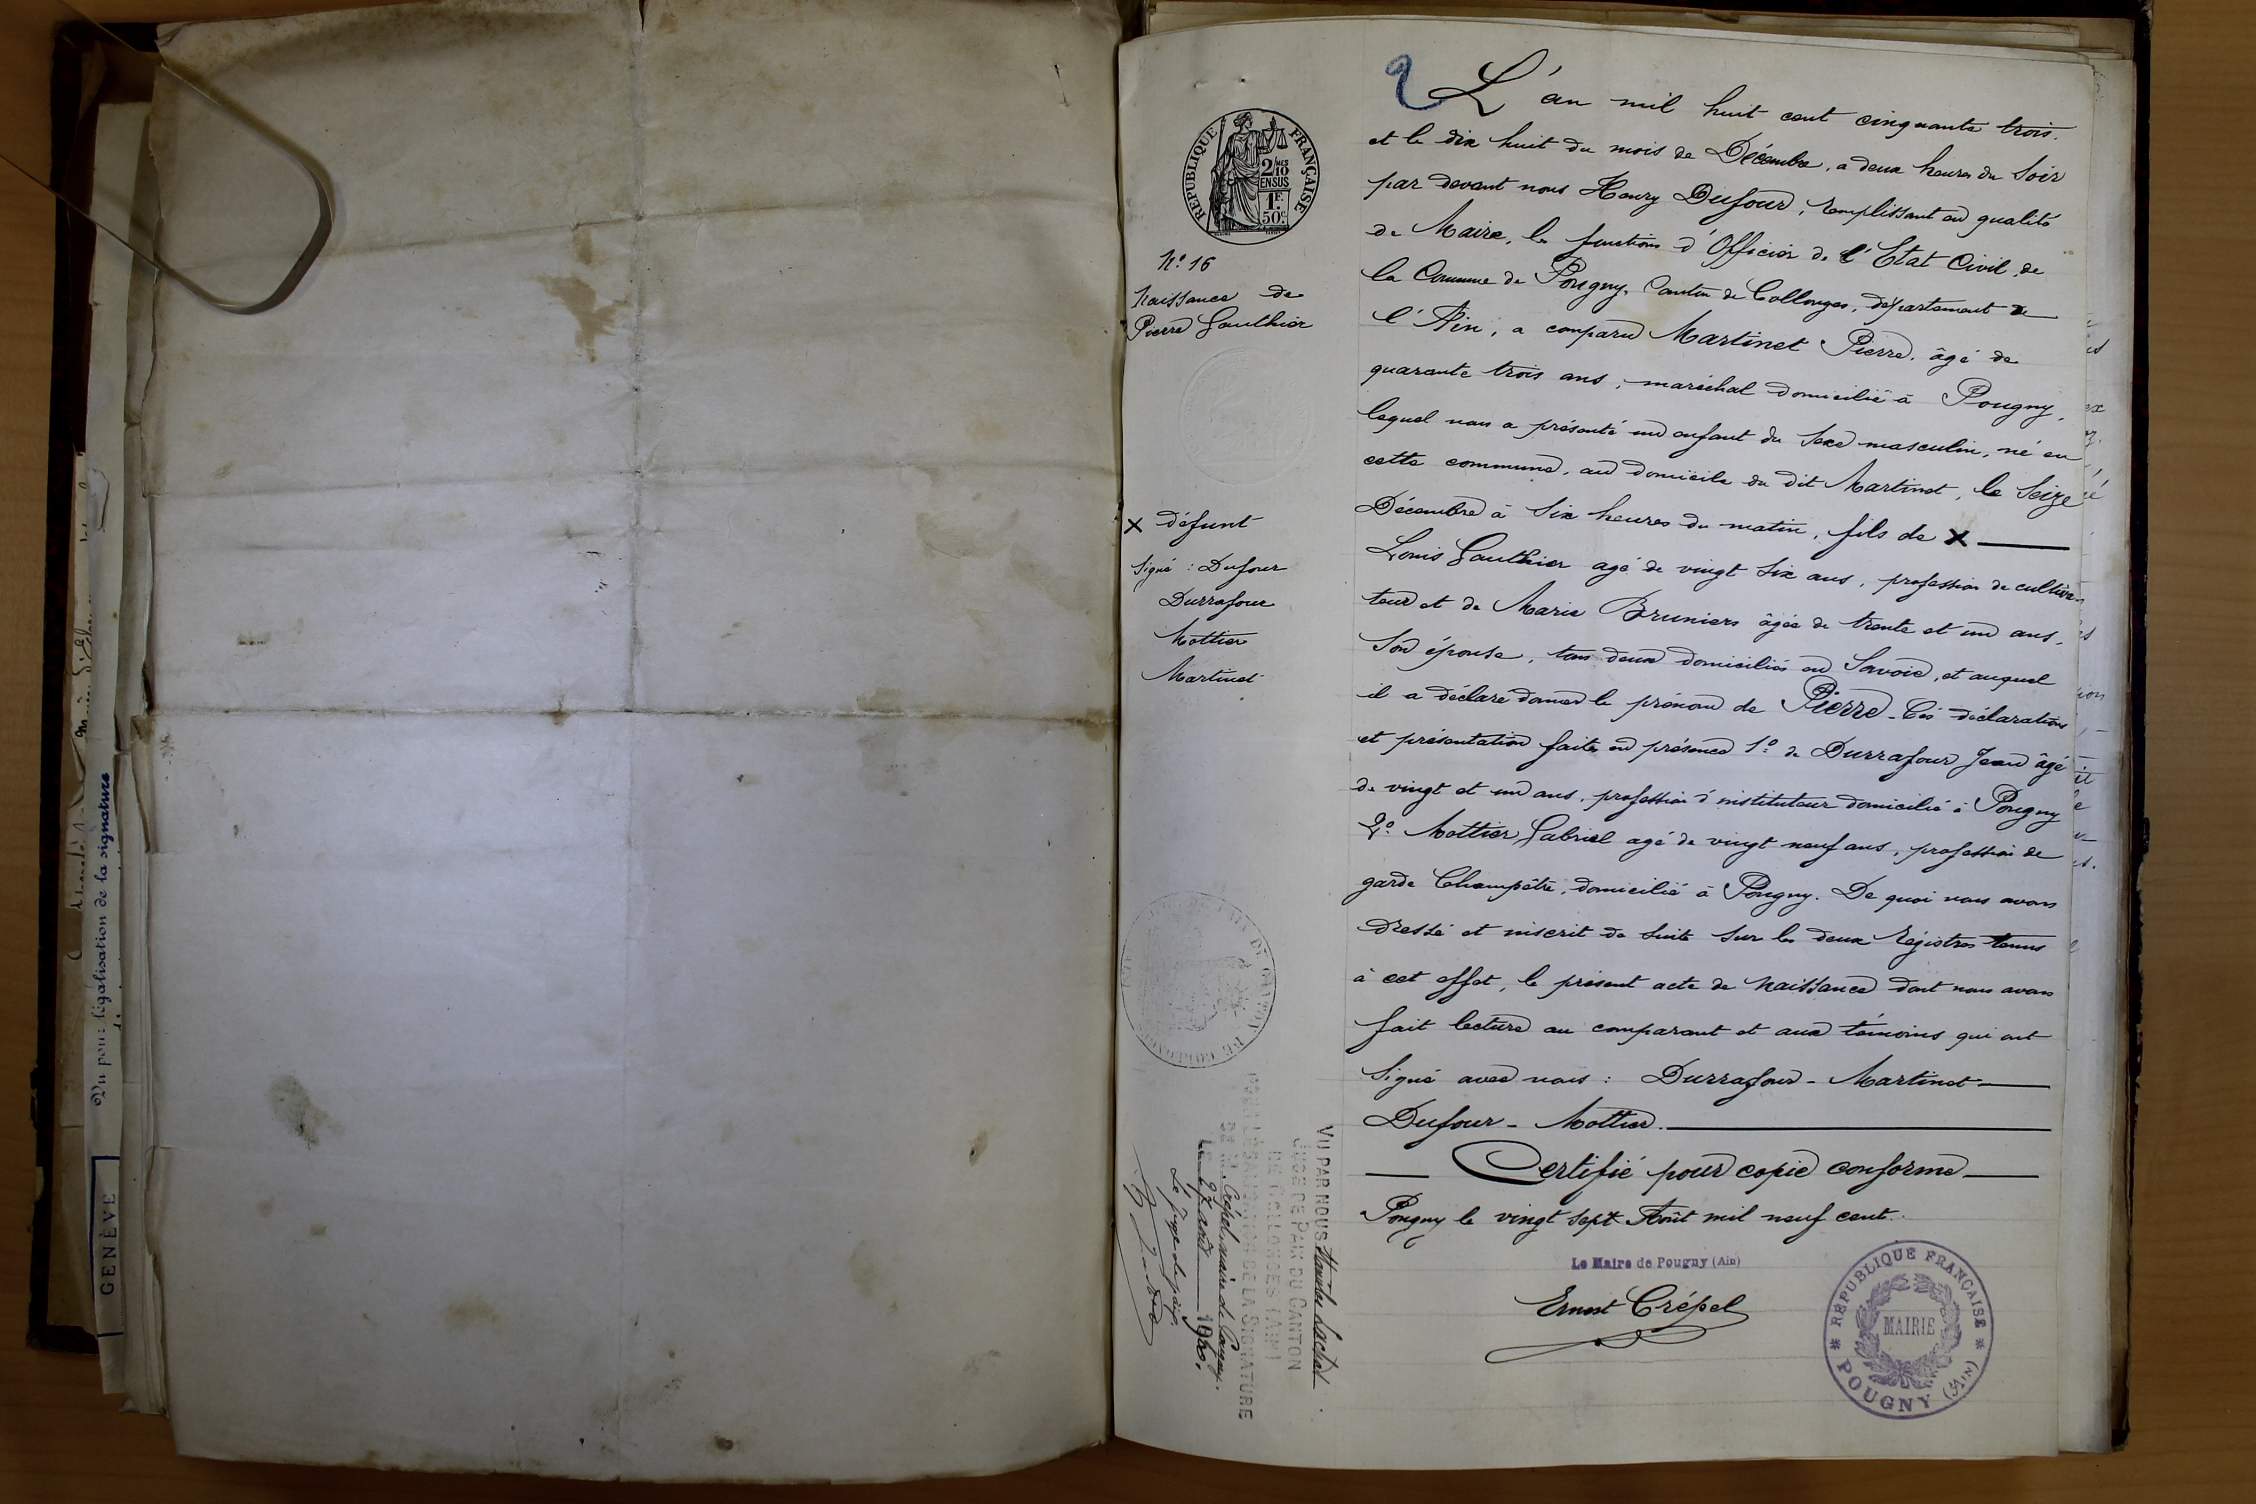 2
L'an mil huit cent cinquante trois.
et le dix huit du mois de Décembre, a deux heures du soir
par devant nous Henry Dufour, remplissant en qualité
de Maire, les fonctions d'Officier de l'Etat Civil de
la Commune de Pougny, Canton de Collonges, département de
l'Ain, a comparu Martinet Pierre, âgé de
quarante trois ans, maréchal domicilié à Pougny,
lequel nous a présenté un enfant du sexe masculin, né en
cette commune, au domicile du dit Martinet, le seize
Décembre à six heures du matin, fils de x
Louis Gauthier agé de vingt six ans, profession de cultiva-
teur et de Marie Bruniers âgée de trente et un ans,
son épouse, tous deux domiciliés en Savoie, et auquel
il a déclaré donner le prénom de Pierre - Ces déclarations
et présentation faites en présence 1º de Durrafour Jean âgé
de vingt et un ans, profession d'instituteur domicilié à Pougny
2º Mottier Gabriel agé de vingt neuf ans, profession de
garde Champêtre, domicilié à Pougny. De quoi nous avons
dressé et inscrit de suite sur les deux régistres tenus
à cet effet, le présent acte de naissance dont nous avons
fait lecture au comparant et aux témoins qui ont
signé avec nous : Durrafour - Martinet
Dufour - Mottier.
Certifié pour copie conforme
Pougny le vingt sept Août mil neuf cent.
Le Maire de Pougny (Ain)
Ernest Crépel
REPUBLIQUE FRANÇAISE
MAIRIE
* POUGNY (AIN) *
REPUBLIQUE FRANÇAISE
2/10 MES
EN SUS
1F.
50c
Nº 16
Naissance de
Pierre Gauthier
x défunt
Signé : Dufour
Durrafour
Mottier
Martinet
VU PAR NOUS
JUGE DE PAIX DU CANTON
DE COLLONGES (AIN)
POUR LÉGALISATION DE LA SIGNATURE
DE M. Crépel, maire de Pougny.
LE 27 août 1900.
Le juge de paix
Vu pour légalisation de la signature
GENÈVE